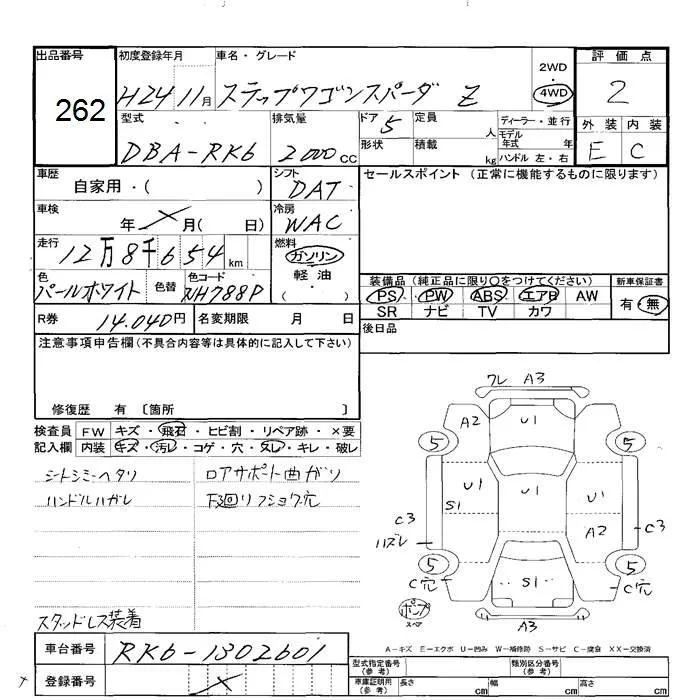 出品番号 初度登録年月 車名・グレード 評価点
262 H24 11月 ステップワゴンスパーダ Z 2WD 4WD 2
型式 排気量 ドア 5 定員 人 ディーラー・並行 外装 内装
DBA-RK6 2000cc 形状 積載 kg モデル年式 年 ハンドル 左・右 E C
車歴 自家用・( ) シフト DAT セールスポイント (正常に機能するものに限ります)
車検 年 月( 日) 冷房 WAC
走行 12万8千654 km 燃料 ガソリン
軽油・( )
色 パールホワイト 色替 色コード NH788P
装備品 (純正品に限り○をつけてください) 新車保証書
PS PW ABS エアB AW 有・無
SR ナビ TV カワ
R券 14.040円 名変期限 月 日 後日品
注意事項申告欄(不具合内容等は具体的に記入して下さい)
修復歴 有 〔箇所 〕
検査員 FW キズ・飛石・ヒビ割・リペア跡・×要
記入欄 内装 キズ・汚レ・コゲ・穴・スレ・キレ・破レ
シートシミーヘタリ ロアサポート曲ガリ
ハンドルハガレ 下廻リフショク穴
スタッドレス装着
ワレ A3
A2 U1
5 5
U1 U1 U1
S1
C3 ハズレ A2 C3
5 5
C穴 S1 C穴
ポンプ スペア A3
A-キズ E-エクボ U-凹み W-補修跡 S-サビ C-腐食 XX-交換済
車台番号 RK6-1302601
型式指定番号(参考) 類別区分番号(参考)
登録番号
車庫証明用(参考) 長さ cm 幅 cm 高さ cm